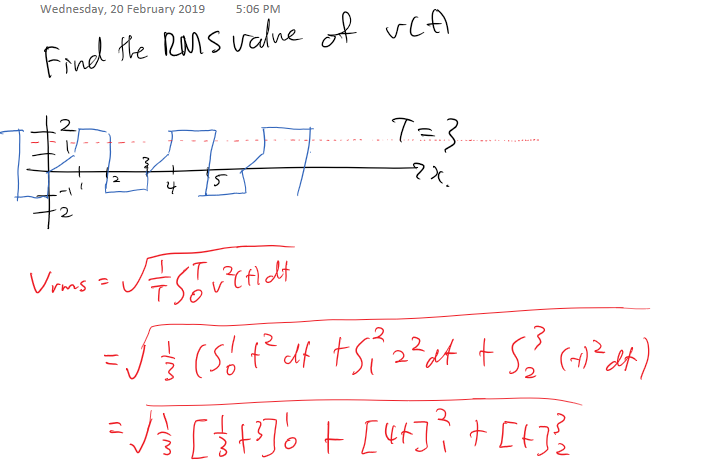 Wednesday, 20 February 2019 5:06 PM
Find the RMS value of v(t)
2
1
T = 3
3
-1 1 2 4 5 x.
2
Vrms = √(1/T ∫₀ᵀ v²(t) dt)
= √(1/3 (∫₀¹ t² dt + ∫₁² 2² dt + ∫₂³ (-1)² dt))
= √(1/3 [1/3 t³]₀¹ + [4t]₁² + [t]₂³)